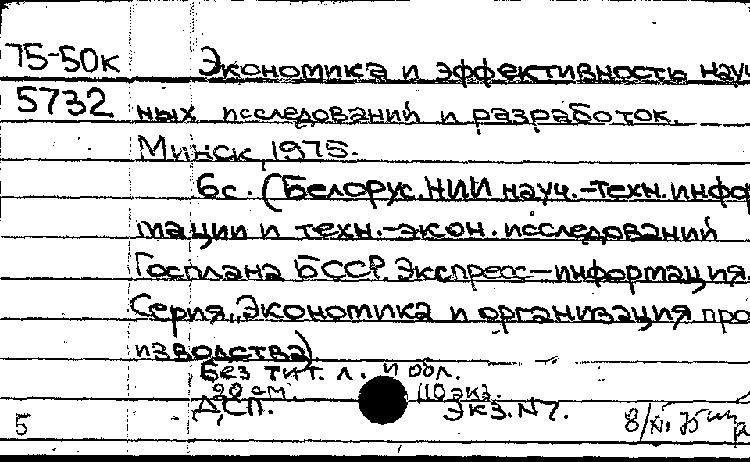 75-50к Экономика и эффективность науч
5732 ных исследований и разработок.
Минск, 1975.
6с. (Белорус. НИИ науч.-техн. инфор
мации и техн.-экон. исследований
Госплана БССР. Экспресс-информация.
Серия „Экономика и организация про
изводства)
Без тит. л. и обл.
20 см. 110 экз.
ДСП. Экз. N7.
5 8/XI 75